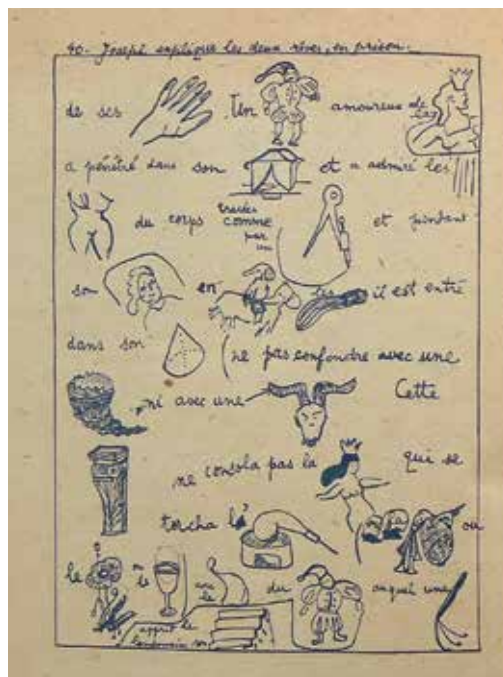 40. Joseph explique les deux rêves, en prison.
de ses Un amoureux de la
a pénétré dans son et a admiré les
du corps tracées comme par un et pendant
son en il est entré
dans son (ne pas confondre avec une
ni avec une Cette
ne consola pas la qui se
torcha la ou
le le avec le du auquel une
apprit le lendemain son